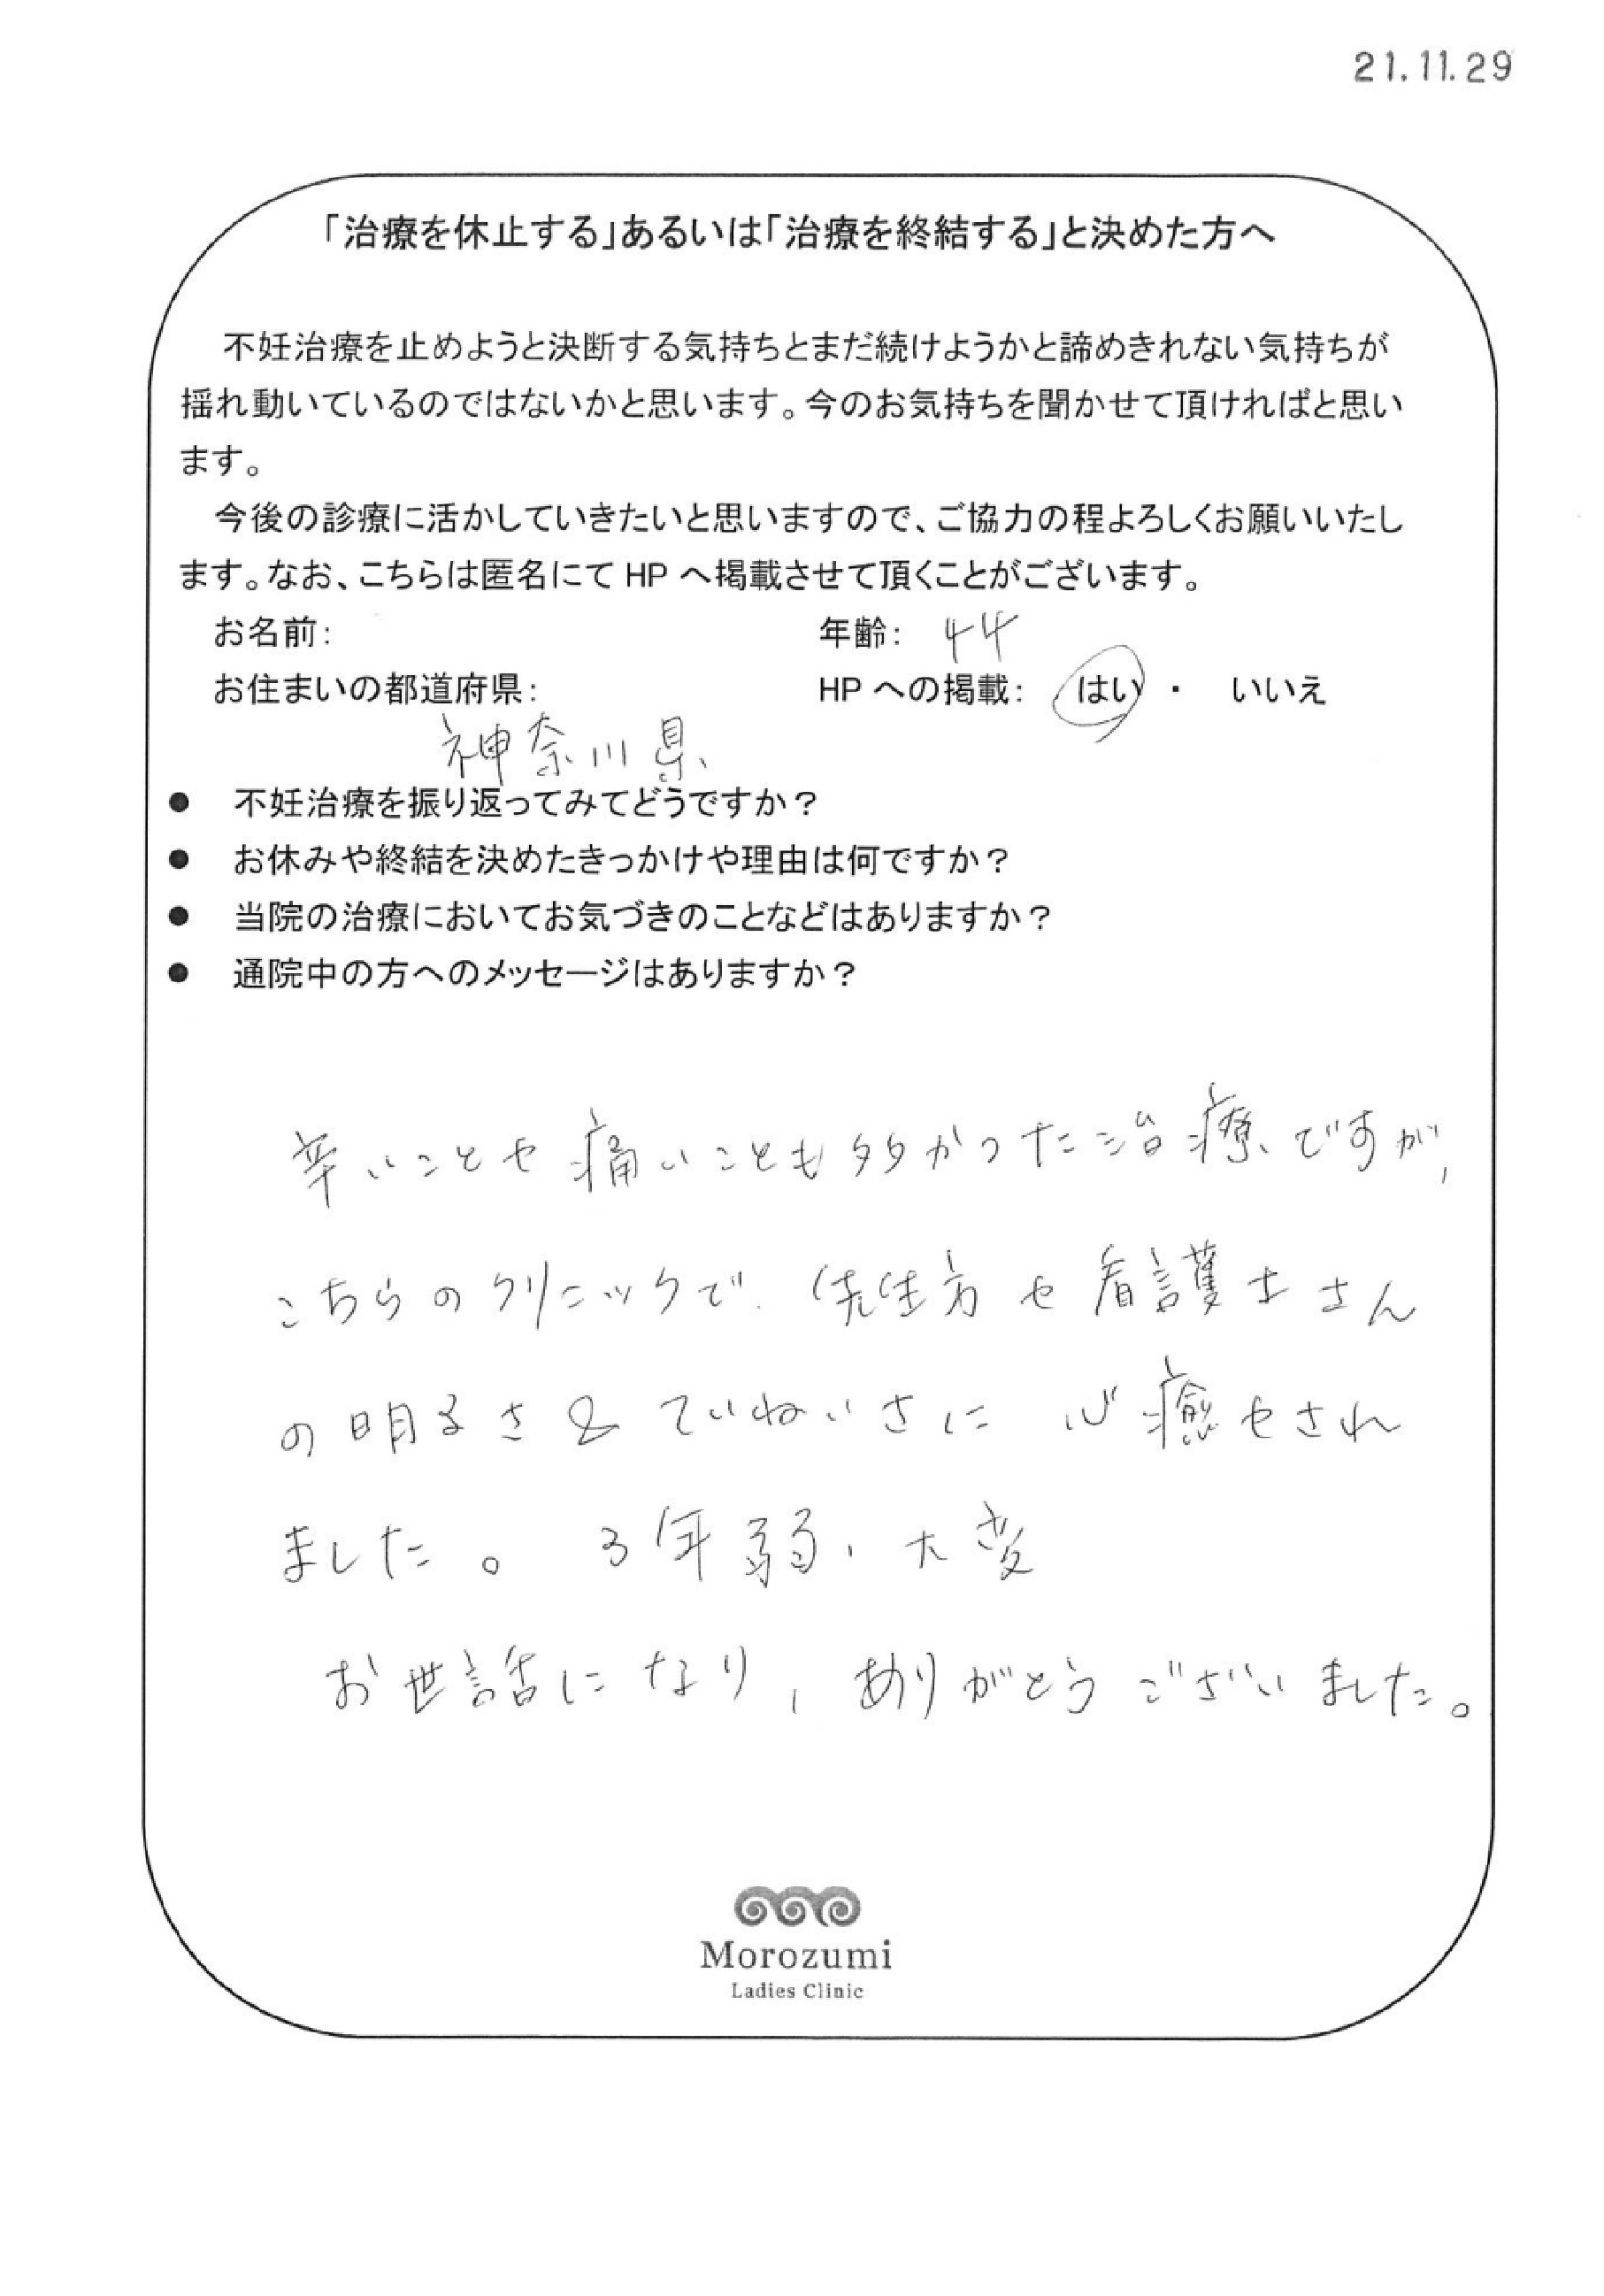 21.11.29
「治療を休止する」あるいは「治療を終結する」と決めた方へ
不妊治療を止めようと決断する気持ちとまだ続けようかと諦めきれない気持ちが
揺れ動いているのではないかと思います。今のお気持ちを聞かせて頂ければと思い
ます。
今後の診療に活かしていきたいと思いますので、ご協力の程よろしくお願いいたし
ます。なお、こちらは匿名にて HP へ掲載させて頂くことがございます。
お名前： 年齢： 44
お住まいの都道府県： HP への掲載： はい ・ いいえ
神奈川県
● 不妊治療を振り返ってみてどうですか？
● お休みや終結を決めたきっかけや理由は何ですか？
● 当院の治療においてお気づきのことなどはありますか？
● 通院中の方へのメッセージはありますか？
辛いことや痛いことも多かった治療ですが,
こちらのクリニックで、先生方や看護士さん
の明るさ&ていねいさに 心癒やされ
ました。 3年弱、大変
お世話になり, ありがとうございました。
Morozumi
Ladies Clinic